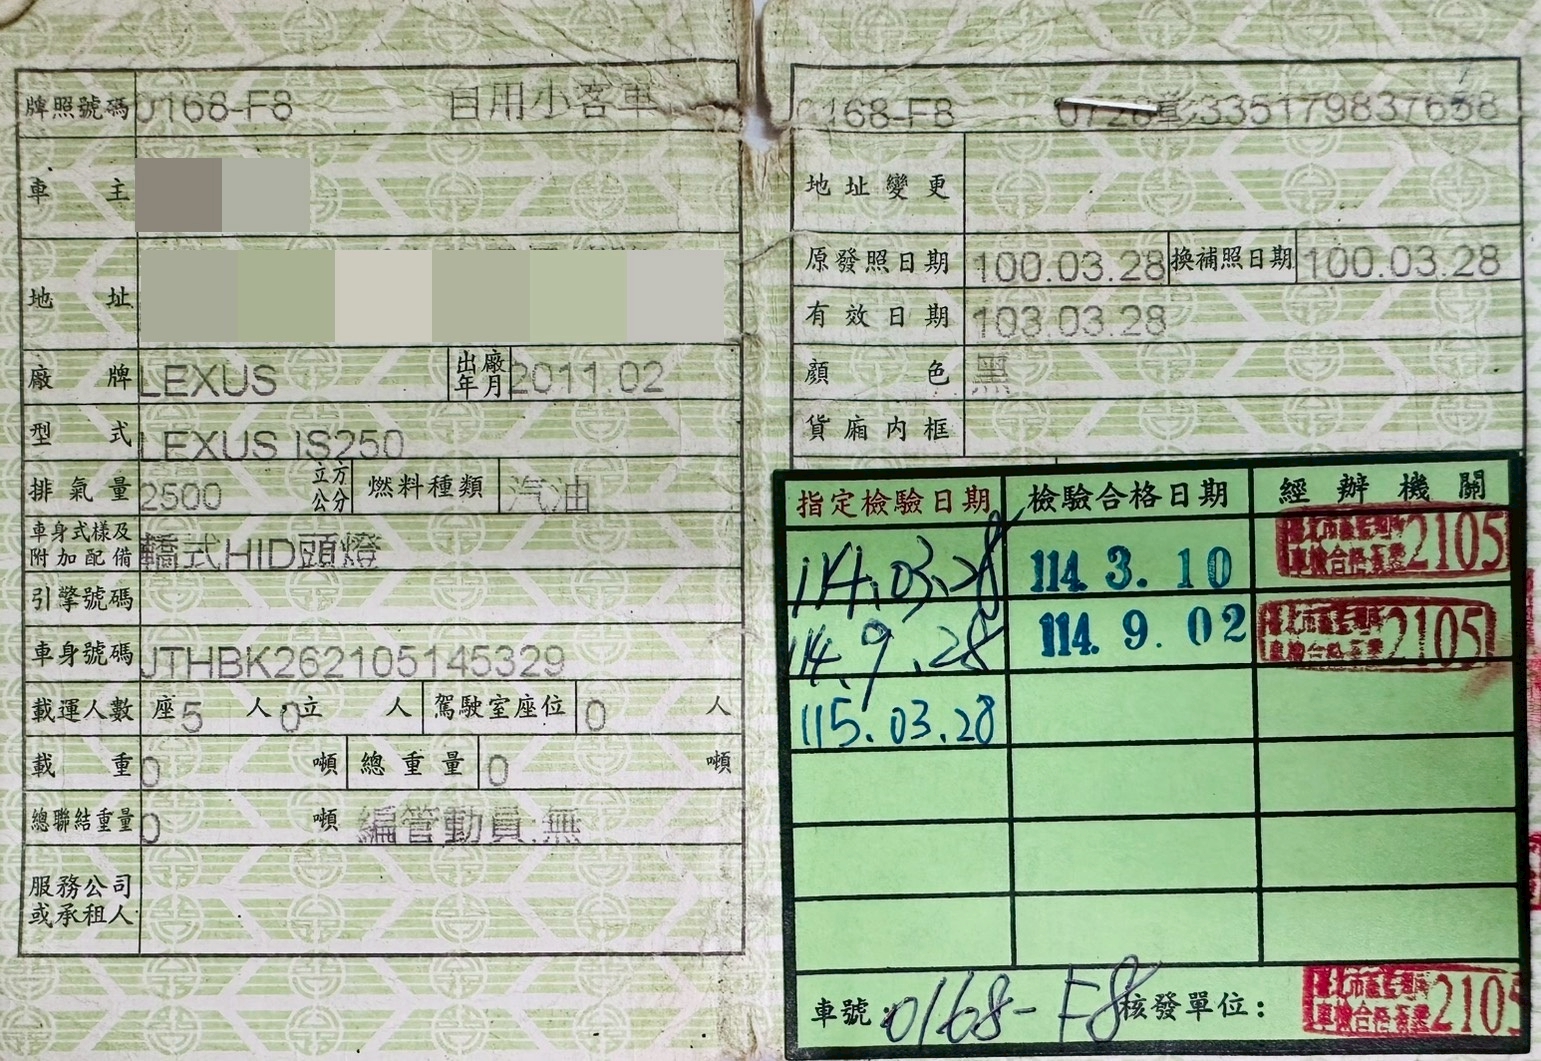 牌照號碼 0168-F8 自用小客車
車主
地址
廠牌 LEXUS 出廠年月 2011.02
型式 LEXUS IS250
排氣量 2500 立方公分 燃料種類 汽油
車身式樣及附加配備 轎式HID頭燈
引擎號碼
車身號碼 JTHBK262105145329
載運人數 座5人 0立人 駕駛室座位 0 人
載重 0 噸 總重量 0 噸
總聯結重量 0 噸 編管動員:無
服務公司或承租人
0168-F8
地址變更
原發照日期 100.03.28 換補照日期 100.03.28
有效日期 103.03.28
顏色 黑
貨廂內框
指定檢驗日期 檢驗合格日期 經辦機關
114.03.28 114.3.10 2105
114.9.28 114.9.02 2105
115.03.28
車號 0168-F8 核發單位: 2105